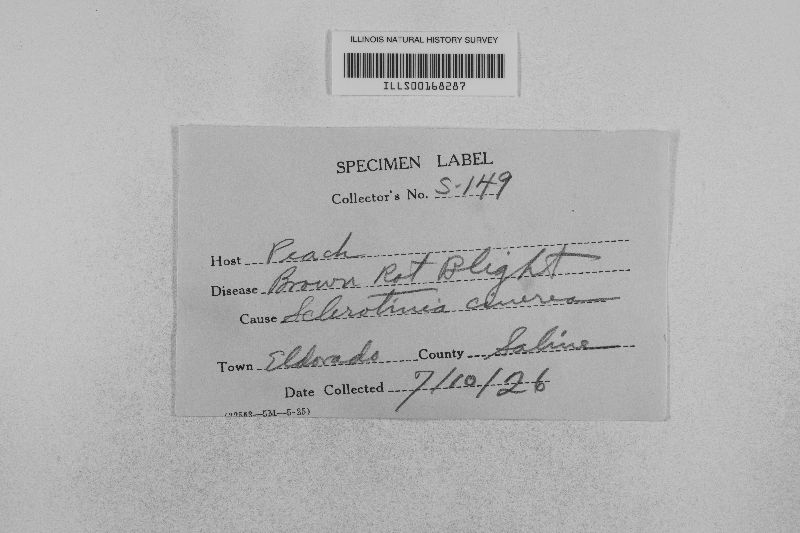 ILLINOIS NATURAL HISTORY SURVEY
ILLS00168287
SPECIMEN LABEL
Collector's No. S-149
Host Peach
Disease Brown Rot Blight
Cause Sclerotinia cinerea
Town Eldorado County Saline
Date Collected 7/10/26
(22568—5M—5-25)